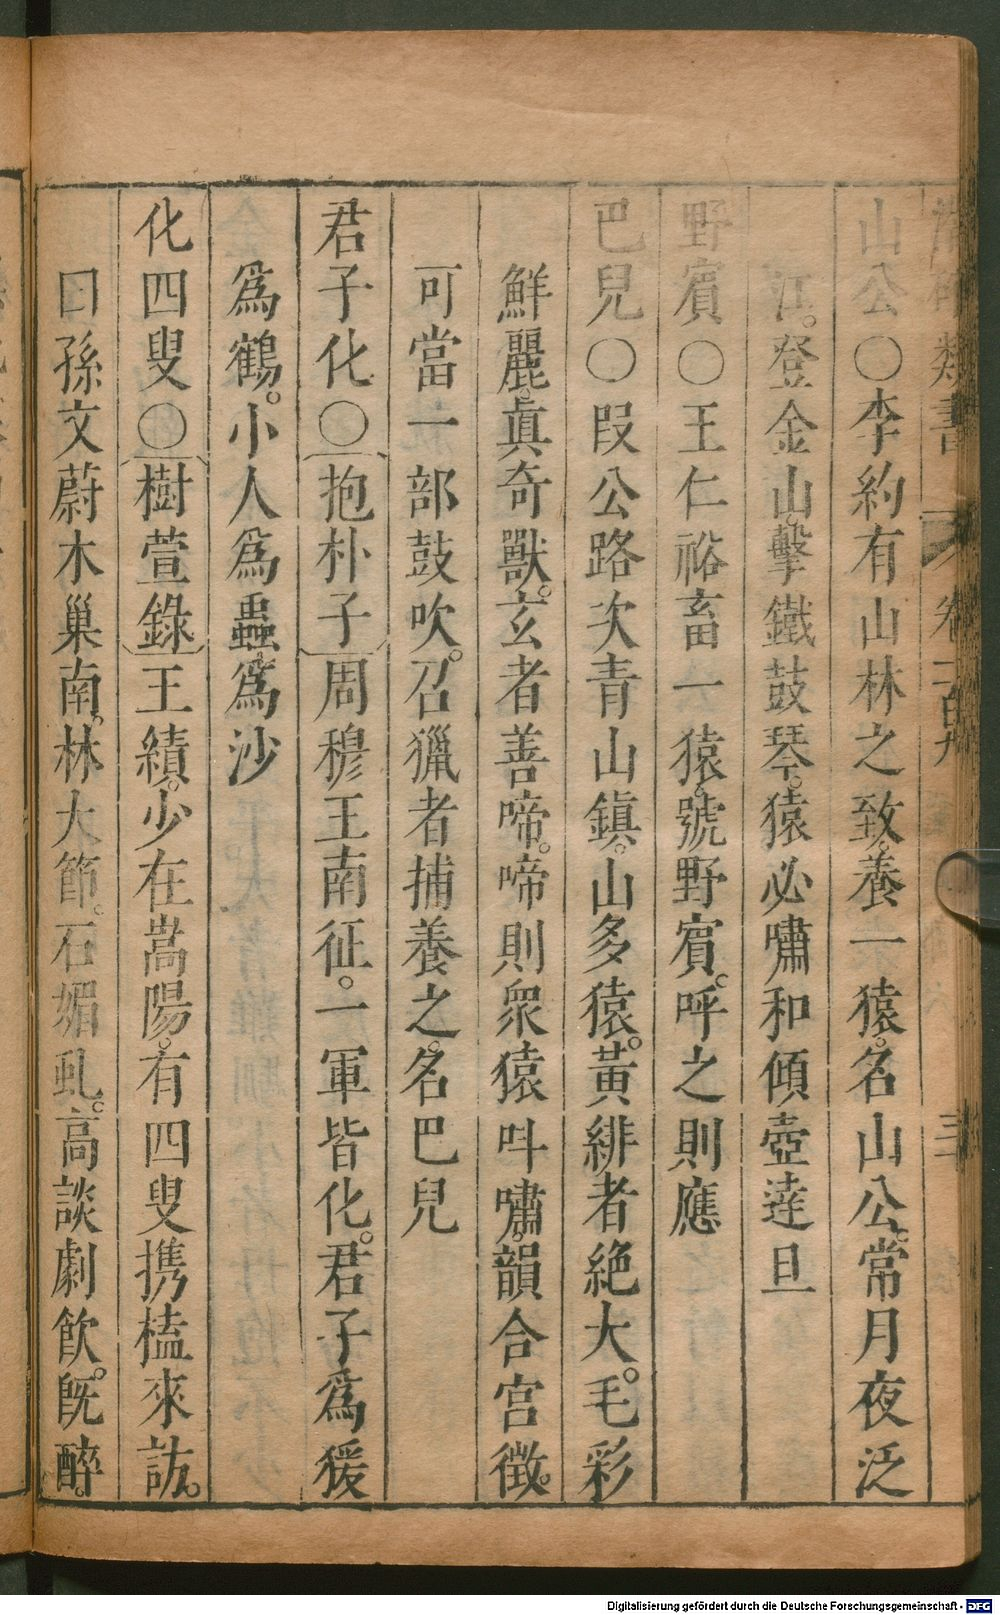 類書 卷二百九 三
山公○李約有山林之致。養一猿。名山公。常月夜泛
江。登金山。擊鐵鼓琴。猿必嘯和傾壺達旦
野賓○王仁裕畜一猿。號野賓。呼之則應
巴兒○段公路次青山鎮。山多猿。黃緋者絶大。毛彩
鮮麗。眞奇獸。玄者善啼。啼則衆猿呌嘯。韻合宮徵。
可當一部鼓吹。召獵者捕養之。名巴兒
君子化○抱朴子周穆王南征。一軍皆化。君子爲猨
爲鶴。小人爲蟲。爲沙
化四叟○樹萱錄王績。少在嵩陽。有四叟携榼來訪。
曰孫文蔚木巢南。林大節。石媚虬。高談劇飲。旣醉。
Digitalisierung gefördert durch die Deutsche Forschungsgemeinschaft - DFG